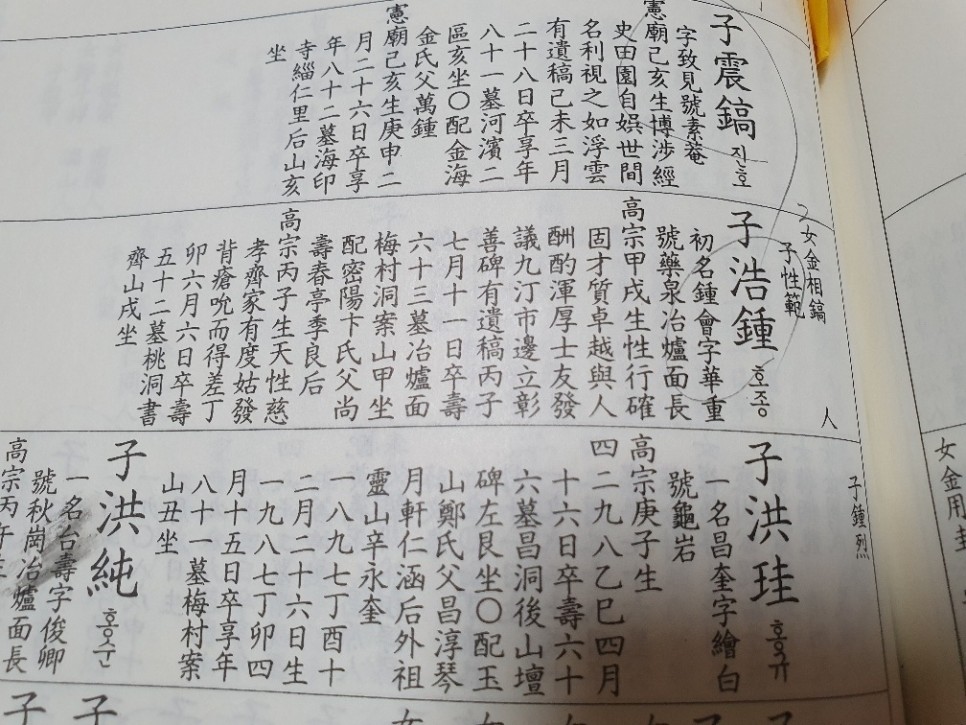 子震鎬 진호
字致見號素菴
憲廟己亥生博涉經
史田園自娛世間
名利視之如浮雲
有遺稿己未三月
二十八日卒享年
八十一墓河濱二
區亥坐〇配金海
金氏父萬鍾
憲廟己亥生庚申二
月二十六日卒享
年八十二墓海印
寺緇仁里后山亥
坐
女金相鎬
子性範
人
子浩鍾 호종
初名鍾會字華重
號藥泉冶爐面長
高宗甲戌生性行確
固才質卓越與人
酬酌渾厚士友發
議九汀市邊立彰
善碑有遺稿丙子
七月十一日卒壽
六十三墓冶爐面
梅村洞案山甲坐
配密陽卞氏父尚
壽春亭季良后
高宗丙子生天性慈
孝齊家有度姑發
背瘡吮而得差丁
卯六月六日卒壽
五十二墓桃洞書
齊山戌坐
子鍾烈
子洪珪 홍규
一名昌奎字繪白
號龜岩
高宗庚子生
四二九八乙巳四月
十六日卒壽六十
六墓昌洞後山壇
碑左艮坐〇配玉
山鄭氏父昌淳琴
月軒仁涵后外祖
靈山辛永奎
一八九七丁酉十
二月二十六日生
一九八七丁卯四
月十五日卒享年
八十一墓梅村案
山丑坐
子洪純 홍순
一名台壽字俊卿
號秋崗冶爐面長
高宗丙午生
女金用
子
子
女
女
女
子
子